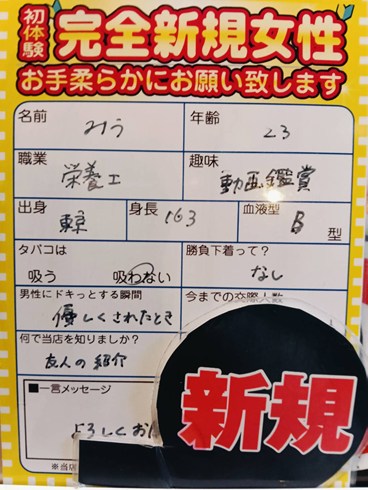 初体験 完全新規女性
お手柔らかにお願い致します
名前 みう 年齢 23
職業 栄養士 趣味 動画鑑賞
出身 東京 身長 163 血液型 B 型
タバコは 吸う 吸わない 勝負下着って? なし
男性にドキっとする瞬間 優しくされたとき 今までの交際人数
何で当店を知りましたか? 友人の紹介
■一言メッセージ
よろしくお
※当店
新規